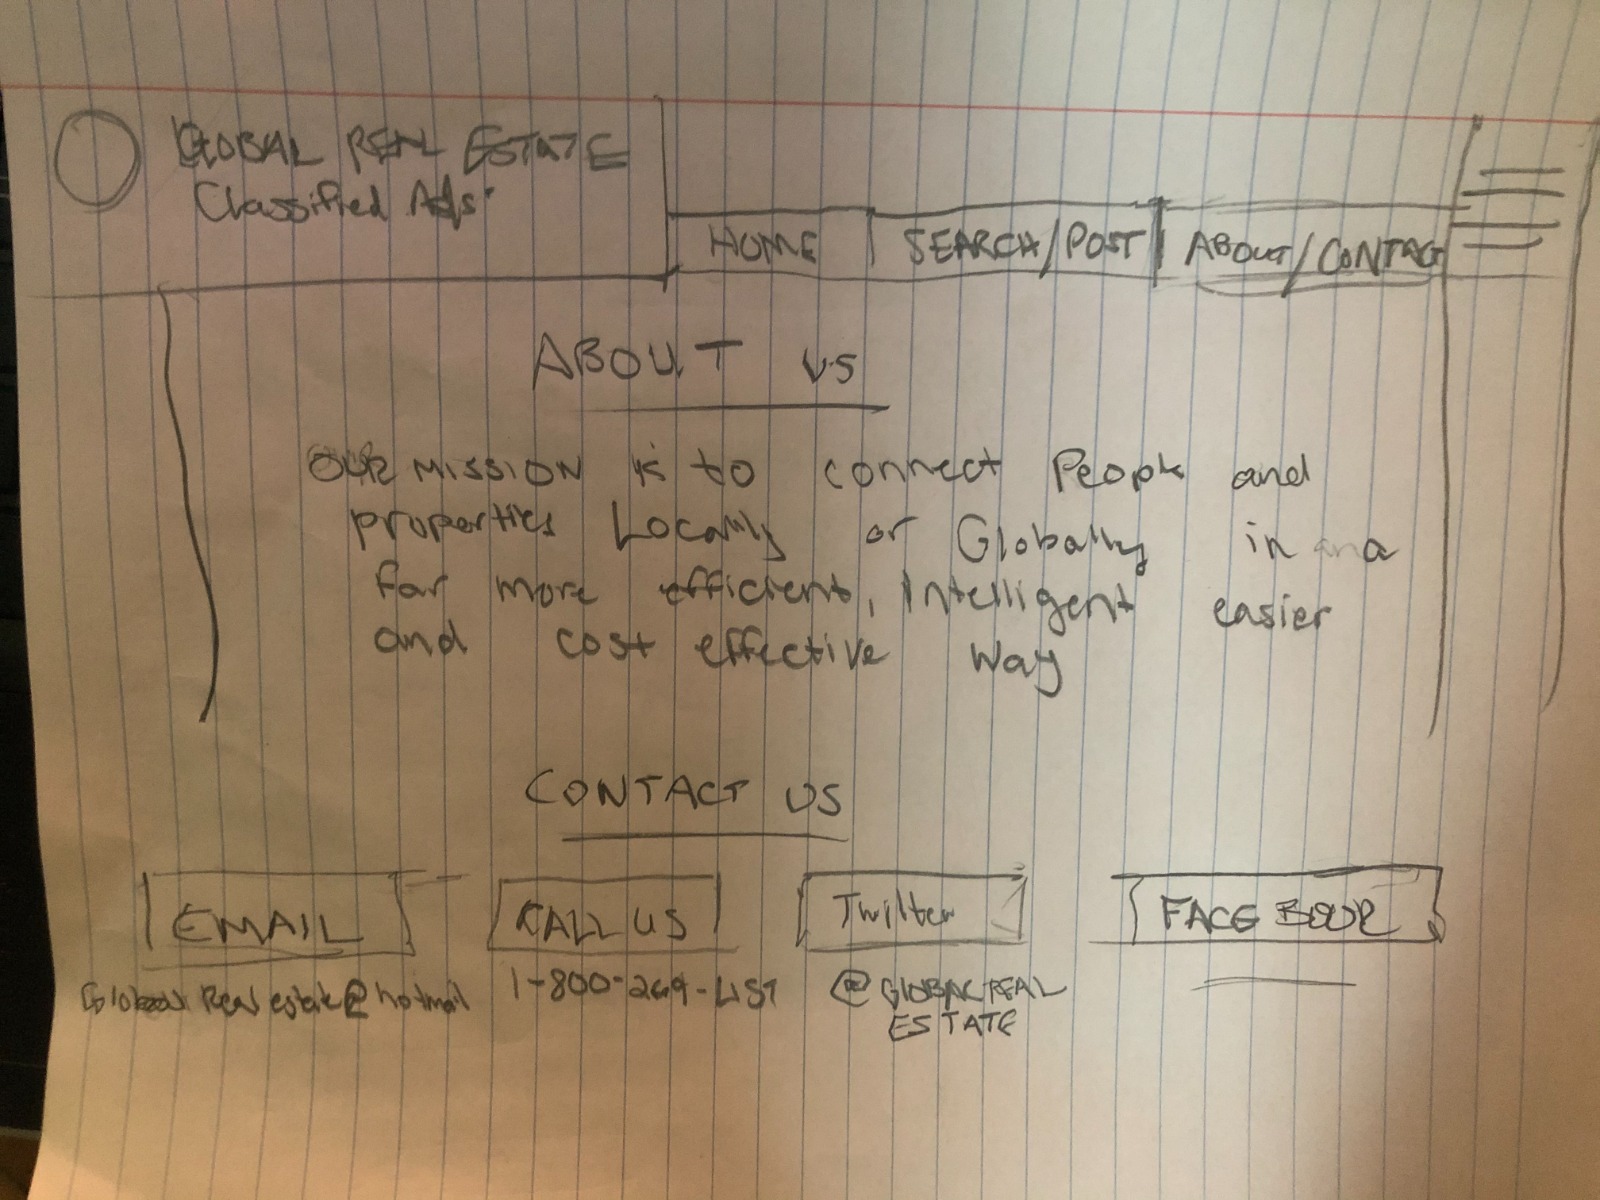 GLOBAL REAL ESTATE
Classified Ads
HOME
SEARCH/POST
ABOUT/CONTACT
ABOUT US
OUR MISSION is to connect People and
properties Locally or Globally in a
far more efficient, Intelligent easier
and cost effective way
CONTACT US
EMAIL
CALL US
Twitter
FACE BOOK
Global Real estate@hotmail
1-800-269-LIST
@GLOBALREAL
ESTATE